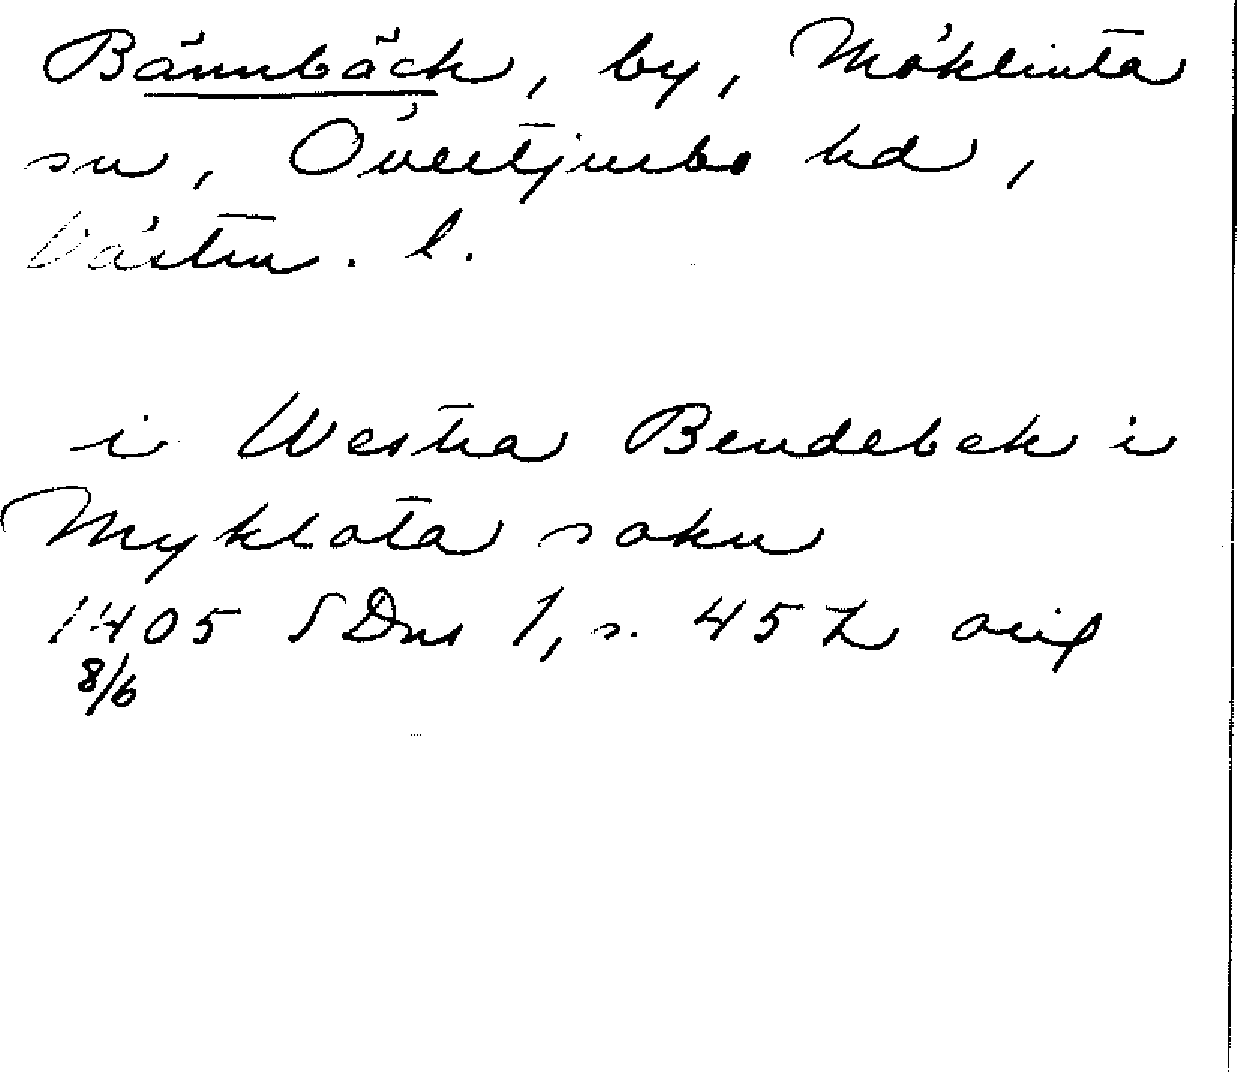 Bännbäck, by, Möklinta
sn, Övertjurbo hd,
Västm. l.
i Westra Bendebek i
Myklata sokn
1405 SDns 1, s. 457 orig
8/6